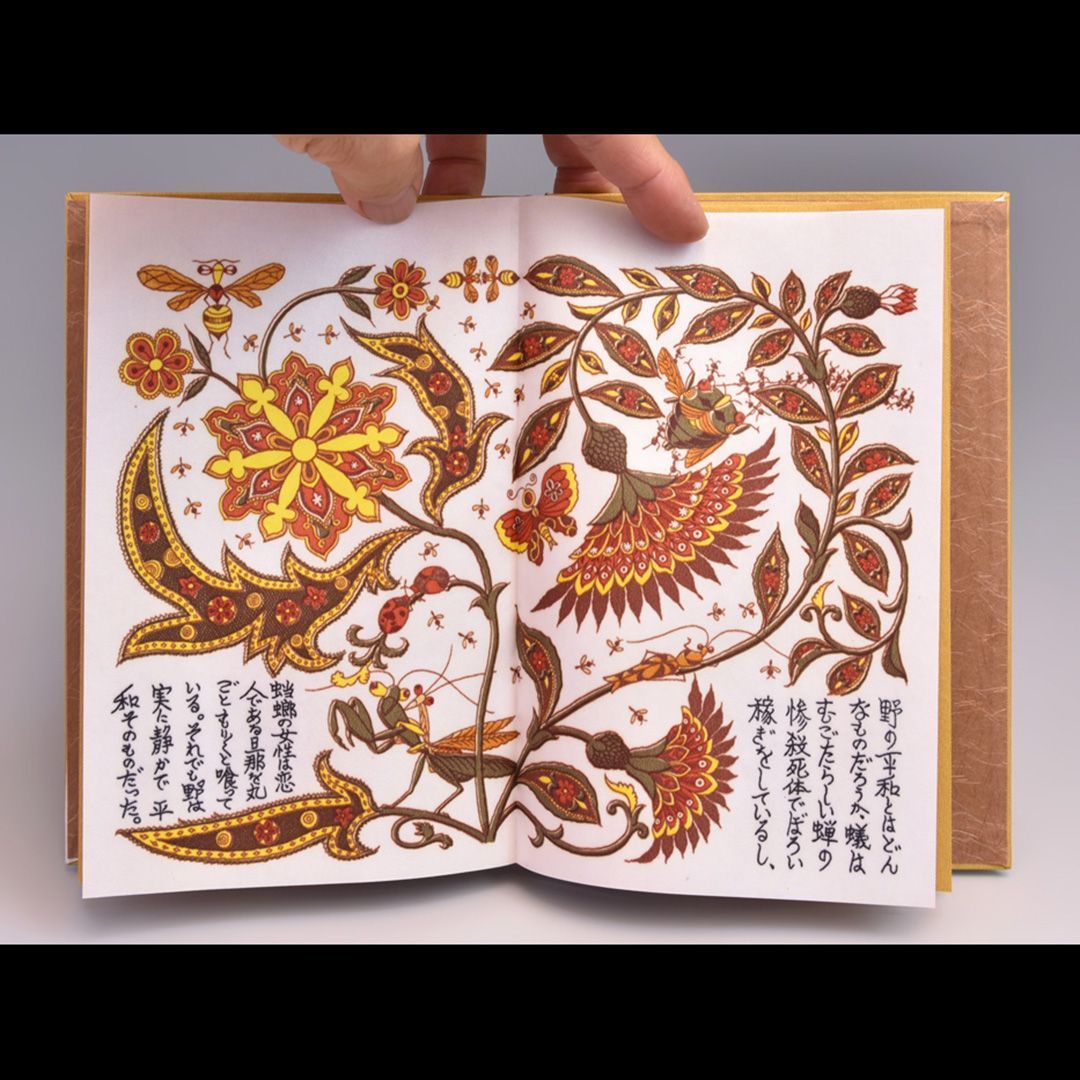 野の平和とはどん
なものだろうか、蟻は
むごたらしい蝉の
惨殺死体でぼろい
稼ぎをしているし、
蟷螂の女性は恋
人である旦那を丸
ごともりもり喰って
いる。それでも野は
実に静かで平
和そのものだった。